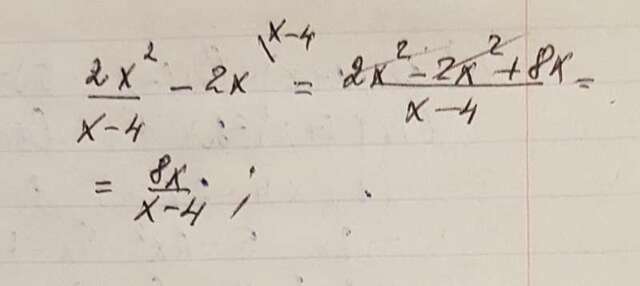 2x²/(x-4) - 2x \x-4 = (2x² - 2x² + 8x)/(x-4) =
= 8x/(x-4) ;